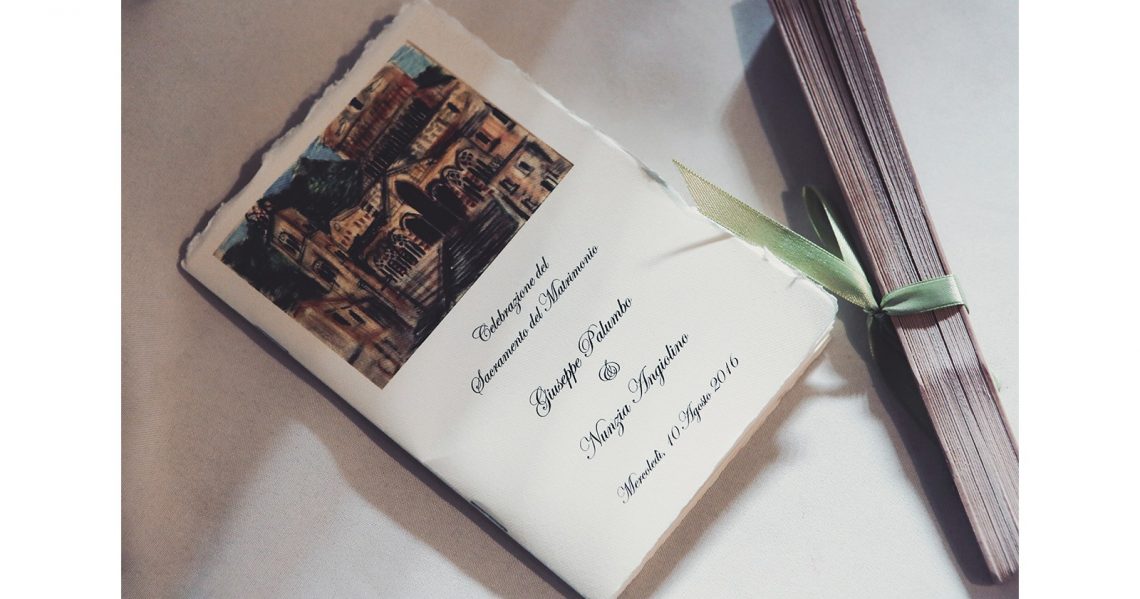 Celebrazione del
Sacramento del Matrimonio
Giuseppe Palumbo
&
Nunzia Angiolino
Mercoledì, 10 Agosto 2016